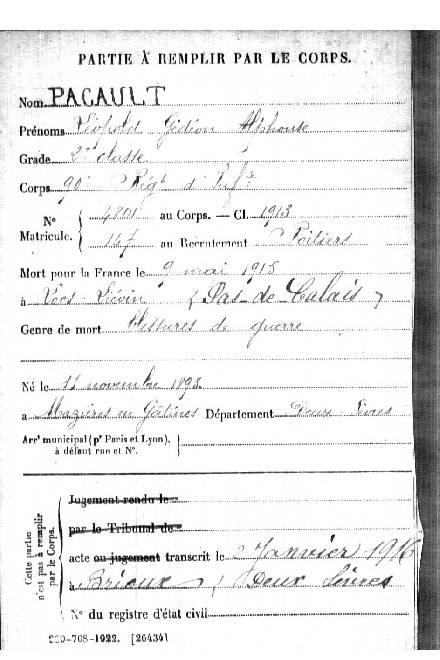 PARTIE À REMPLIR PAR LE CORPS.
Nom PACAULT
Prénoms Léopold Gédéon Alphonse
Grade 2e classe
Corps 90e Régt d'Infie
N° Matricule. 4801 au Corps. — Cl. 1913
147 au Recrutement Poitiers
Mort pour la France le 9 mai 1915
à Loos-Liévin (Pas-de-Calais)
Genre de mort Blessures de guerre
Né le 11 novembre 1893
à Mazières en Gâtines Département Deux Sèvres
Arrt municipal (pr Paris et Lyon),
à défaut rue et N°.
Cette partie n'est pas à remplir par le Corps.
Jugement rendu le
par le Tribunal de
acte ou jugement transcrit le 2 Janvier 1916
à Brioux, Deux Sèvres
N° du registre d'état civil
-708-1922. [26434]